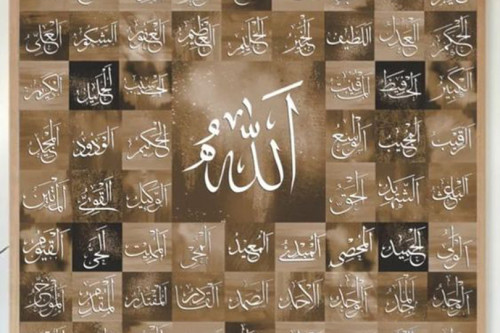 الحكم العدل اللطيف الخبير الحليم العظيم الغفور الشكور العلي
الكبير الحفيظ المقيت الحسيب الجليل الكريم
الرقيب المجيب الواسع الحكيم الودود المجيد
اللهُ
الباعث الشهيد الحق الوكيل القوي المتين
الولي الحميد المحصي المبدئ المعيد المحيي المميت الحي القيوم
الواجد الماجد الواحد الأحد الصمد القادر المقتدر المقدم المؤخر